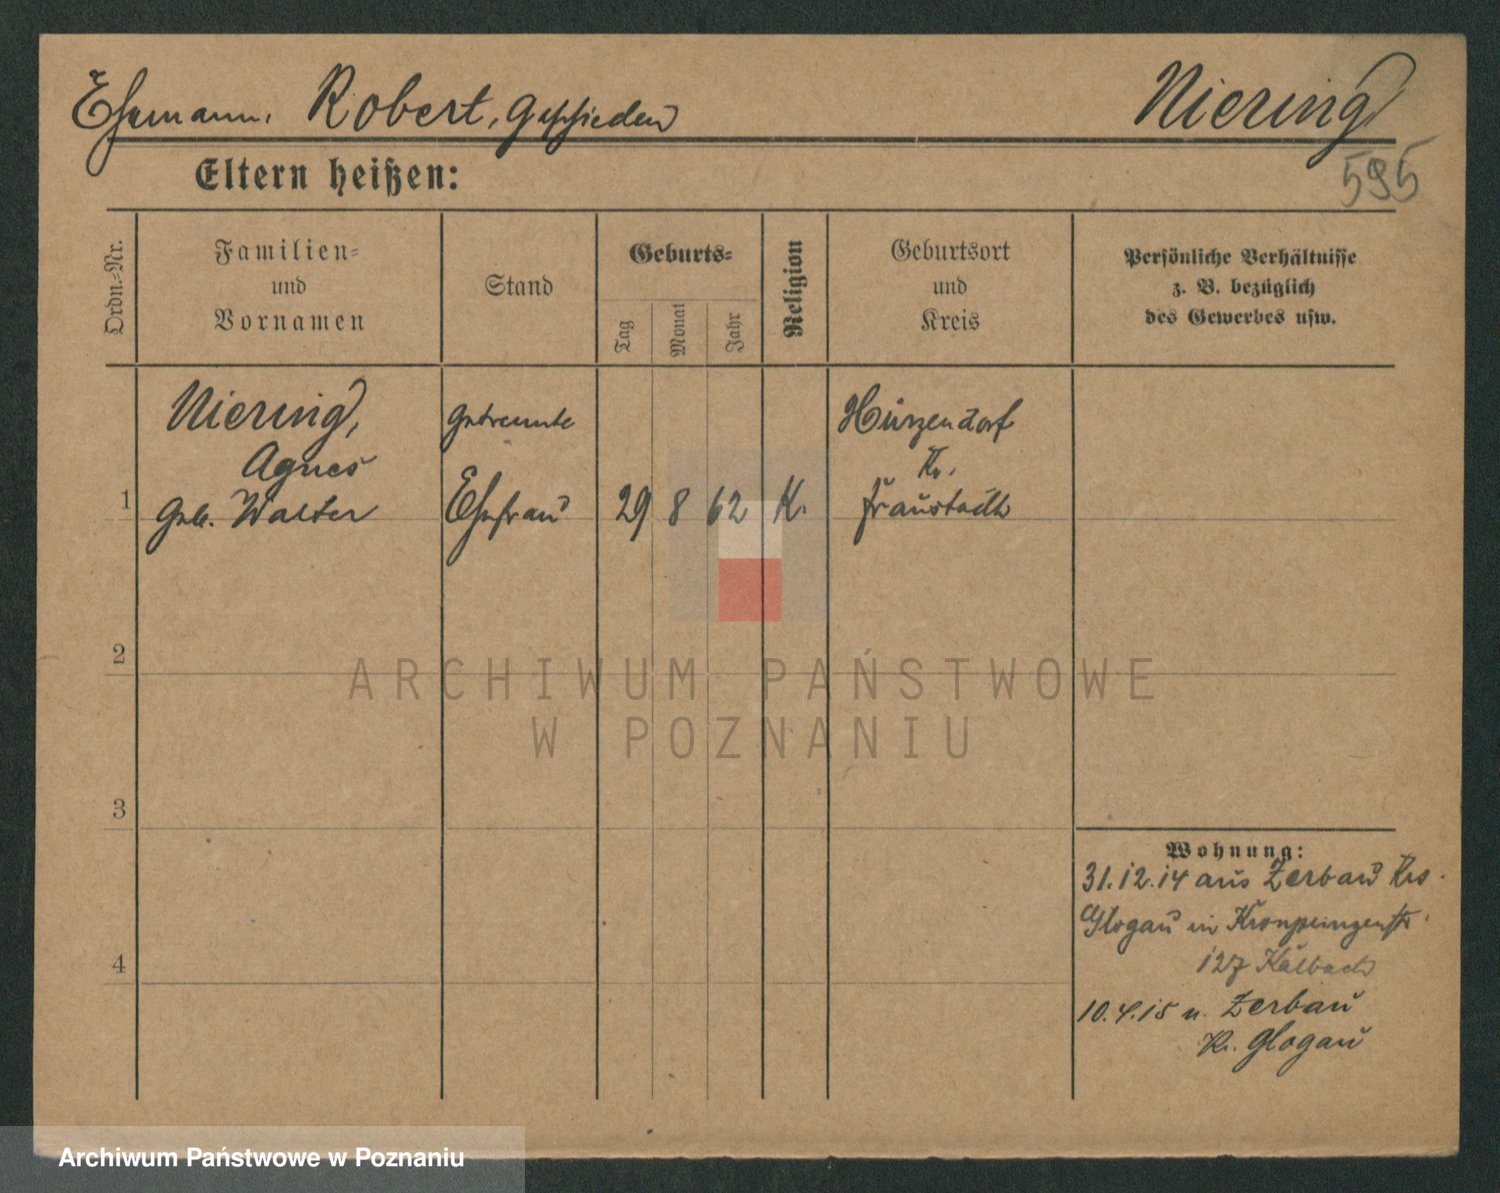 Ehemann, Robert, geschieden Niering
595
Eltern heißen:
Ordn.=Nr.
Familien=
und
Vornamen
Stand
Geburts=
Tag
Monat
Jahr
Religion
Geburtsort
und
Kreis
Persönliche Verhältnisse
z. B. bezüglich
des Gewerbes usw.
1
Niering,
Agnes
geb. Walter
getrennte
Ehefrau
29 8 62 K.
Kr.
Fraustadt
2
3
4
Wohnung:
31.12.14 aus Zerbau Krs.
Glogau in Kronprinzenstr.
127 Kalbach
10.4.15 n. Zerbau
Kr. Glogau
ARCHIWUM PAŃSTWOWE
W POZNANIU
Archiwum Państwowe w Poznaniu